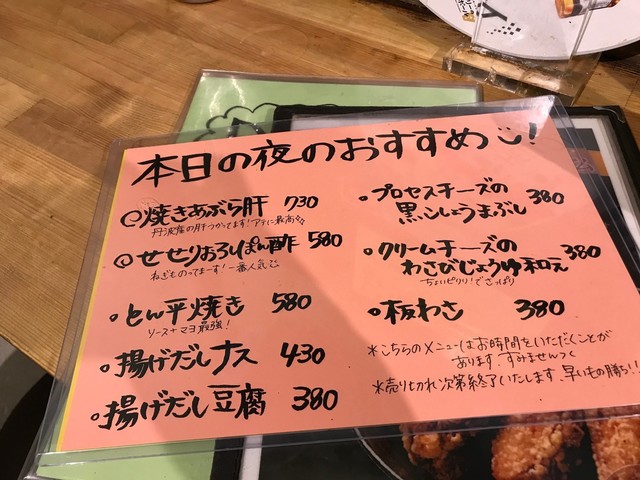 本日の夜のおすすめ!
◎焼きあぶら肝 730
丹波産の肝つかってます!アテに最高
◎せせりおろしぽん酢 580
ねぎものってまーす!一番人気
・とん平焼き 580
ソース+マヨ最強!
・揚げだしナス 430
・揚げだし豆腐 380
・プロセスチーズの
黒こしょうまぶし 380
・クリームチーズの
わさびじょうゆ和え 380
ちょいピリリ!でさっぱり
・板わさ 380
*こちらのメニューはお時間をいただくことが
あります.すみませんっ
*売り切れ次第終了いたします.早いもの勝ち!!